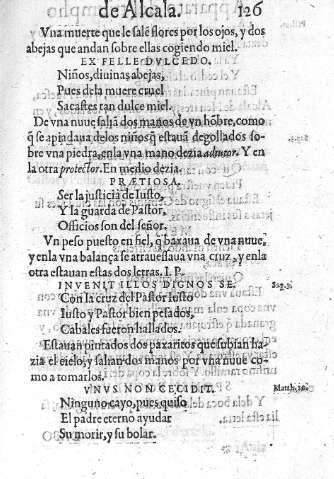 de Alcala. 126
Vna muerte que le salē flores por los ojos, y dos
abejas que andan sobre ellas cogiendo miel.
EX FELLE DVLCEDO.
Niños, diuinas abejas,
Pues de la muerte cruel
Sacastes tan dulce miel.
De vna nuue saliā dos manos de vn hōbre, como
q̄ se apiadaua de los niños q̄ estauā degollados so-
bre vna piedra, en la vna mano dezia adiutor. Y en
la otra protector. En medio dezia.
PRÆTIOSA.
Ser la justicia de Iusto,
Y la guarda de Pastor,
Officios son del señor.
Vn peso puesto en fiel, q̄ baxaua de vna nuue,
y en la vna balança se atrauessaua vna cruz, y en la
otra estauan estas dos letras. I. P.
INVENIT ILLOS DIGNOS SE. Sap. 3.
Con la cruz del Pastor Iusto
Iusto y Pastor bien pesados,
Cabales fueron hallados.
Estauan pintados dos paxaritos que subian ha-
zia el cielo, y salian dos manos por vna nuue co-
mo a tomarlos.
VNVS NON CECIDIT. Matth. 10.
Ninguno cayo, pues quiso
El padre eterno ayudar
Su morir, y su bolar.